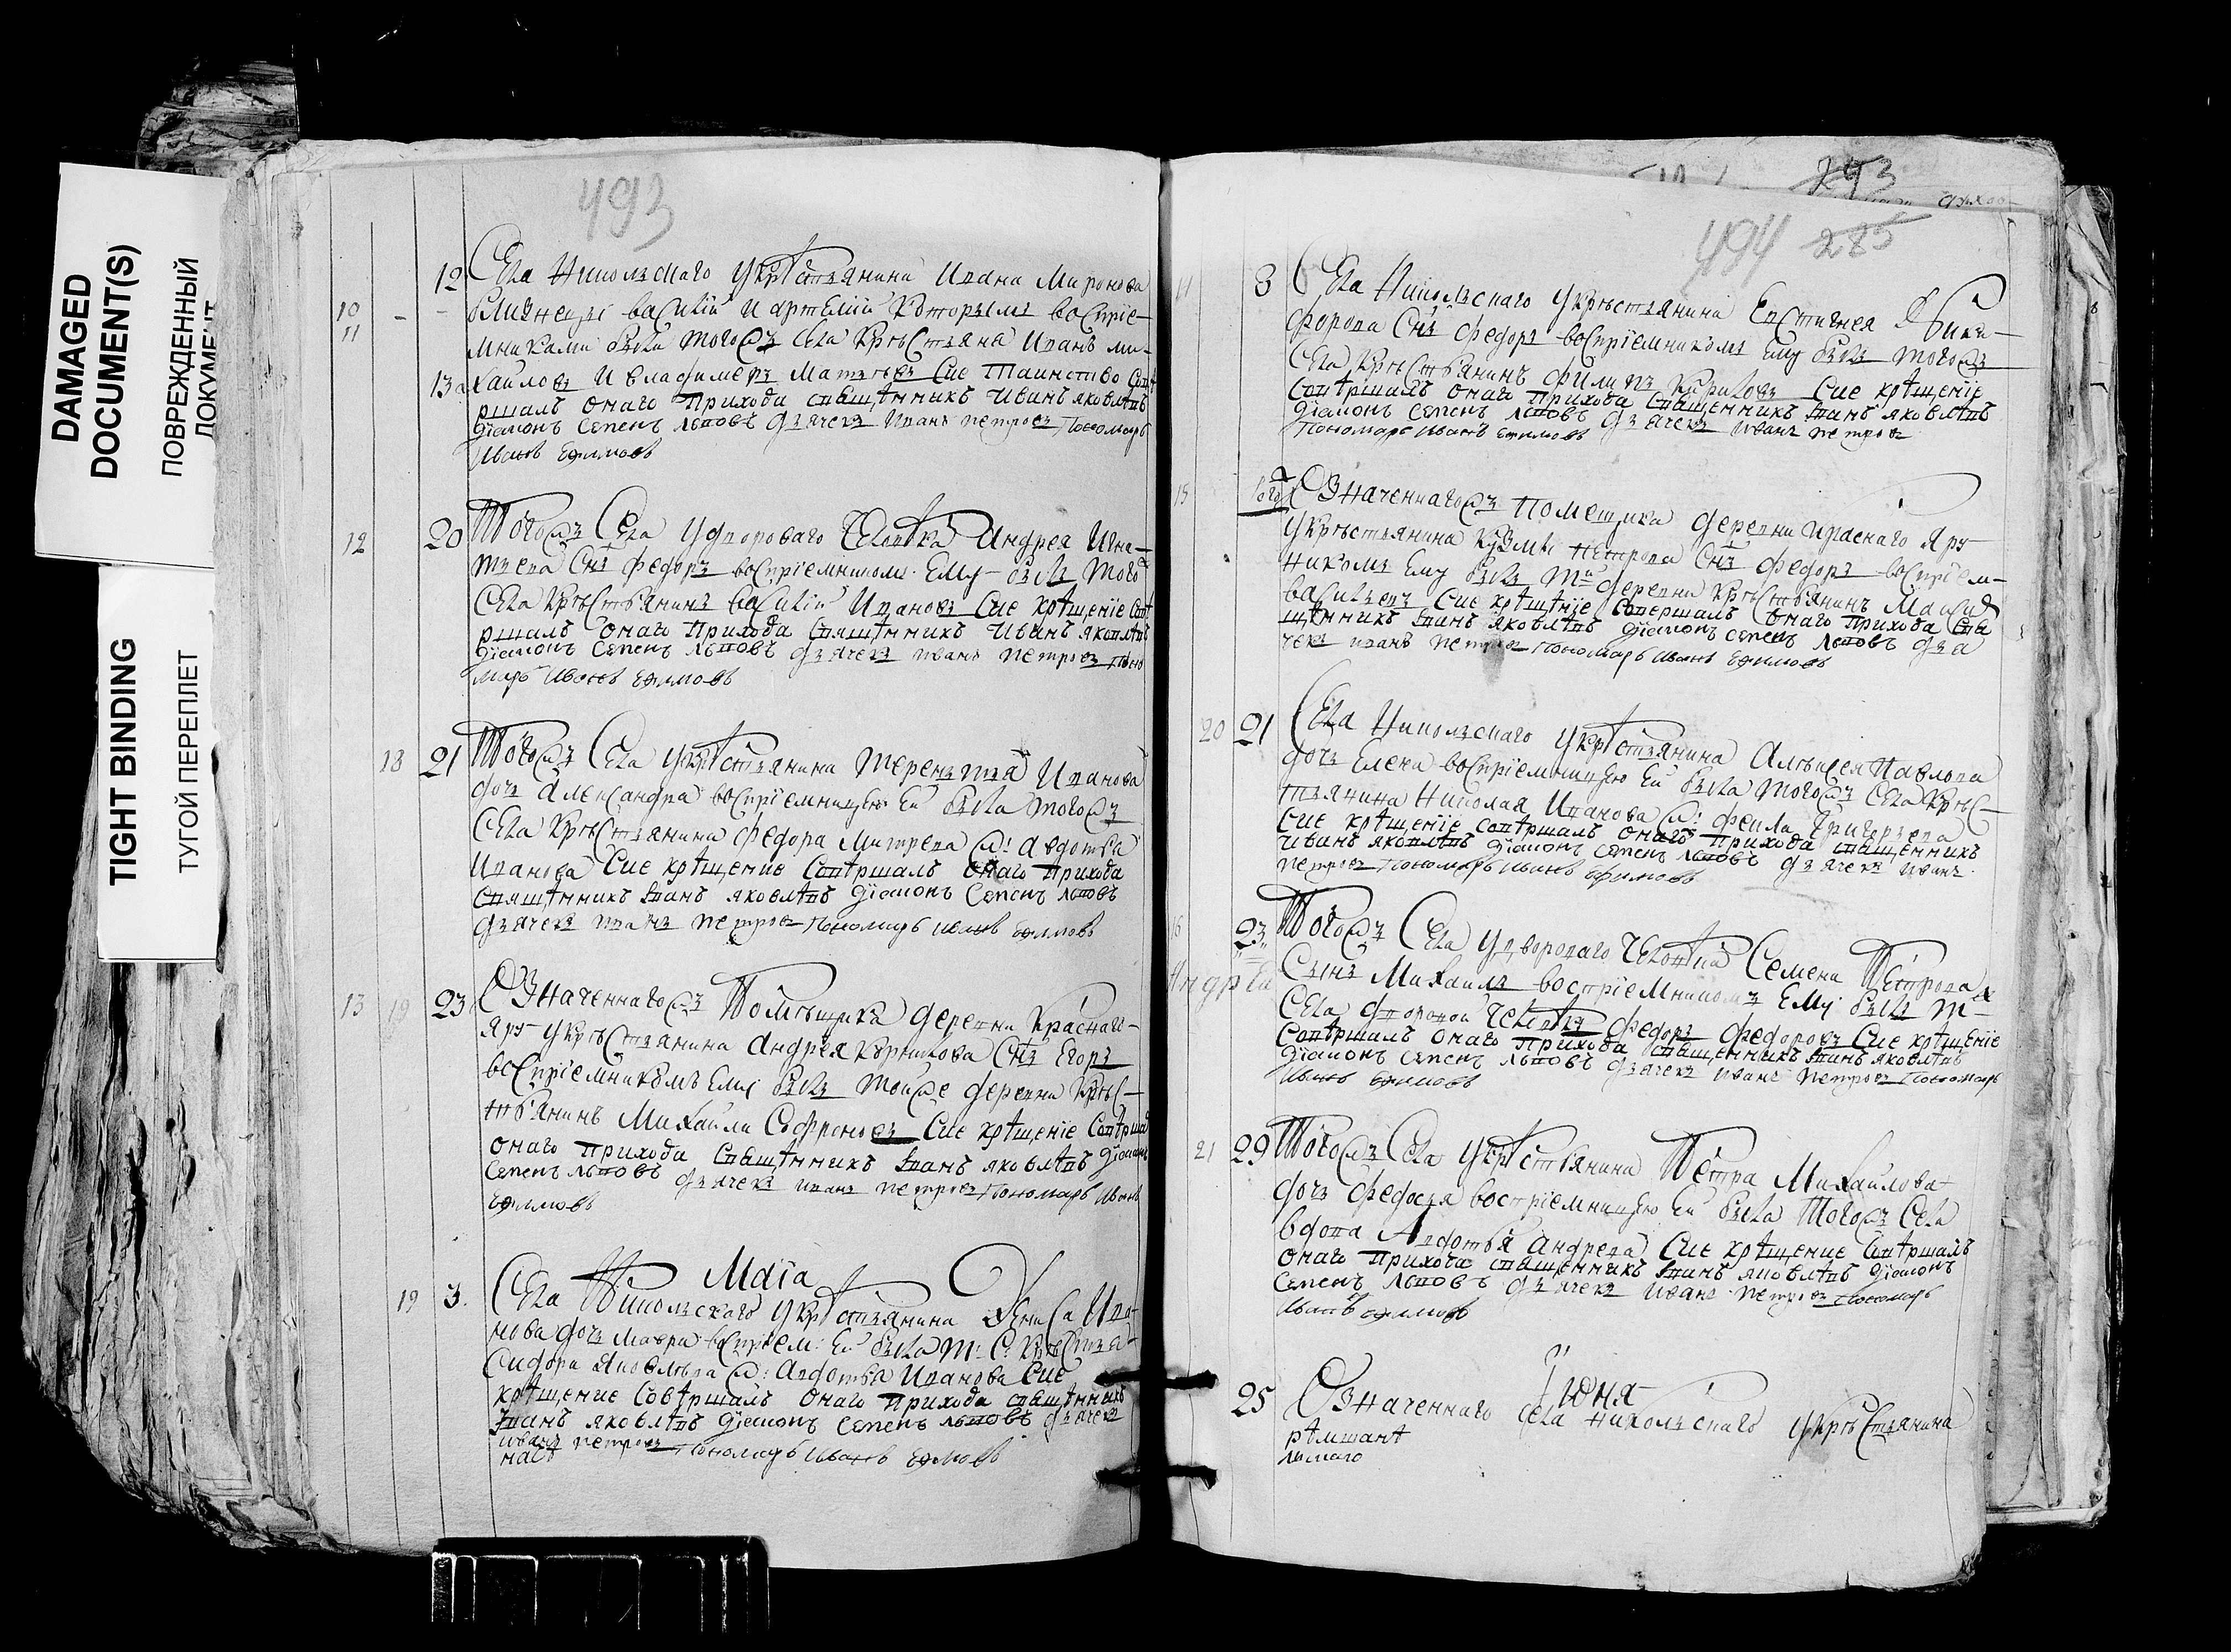 DAMAGED
DOCUMENT(S)
ПОВРЕЖДЕННЫЙ
ДОКУМЕНТ
TIGHT BINDING
ТУГОЙ ПЕРЕПЛЕТ
493
12 Села Никольскаго у крестьянина Ивана Миронова
10 близнецы василий и артемий которымъ воспріе-
11 мниками были тогожъ села крестьяне Иванъ ми-
13 хайловъ и владимеръ Матвеевъ Сие таинство сове
ршалъ онаго прихода священникъ Иванъ яковлевъ
діаконъ Семенъ львовъ дьячекъ иванъ петровъ Пономарь
Иванъ Ефимовъ
12 20 Тогожъ Села у двороваго человека Андрея Игна-
тьева сынъ федоръ воспріемникомъ ему былъ того
села крестьянинъ василий Ивановъ Сие крещеніе сове
ршалъ онаго прихода священникъ Иванъ яковлевъ
діаконъ Семенъ львовъ дьячекъ иванъ петровъ поно
марь Иванъ Ефимовъ
18 21 Тогожъ Села у крестьянина терентья Иванова
дочь александра воспріемницею ей была тогожъ
села крестьянина федора Митрева ж: авдотья
Иванова Сие крещение Совершалъ онаго прихода
священникъ Иванъ яковлевъ діаконъ Семенъ львовъ
дьячекъ иванъ петровъ Пономарь иванъ Ефимовъ
13 19 23 Означеннагожъ Помещика деревни Краснаго
яру у крестьянина андрея сынъ Егоръ
воспріемникомъ ему былъ тоиже деревни крес-
тьянинъ Михайла Софроновъ Сие крещеніе Соверша
онаго прихода священникъ Иванъ яковлевъ діаконъ
Семенъ львовъ дьячекъ иванъ петровъ Пономарь Иванъ
Ефимовъ
Маїа
19 3. Села Никольскаго у крестьянина Дениса Ива-
нова дочь мавра воспріем: ей была т: С: крестья-
Сидора Яковлева ж: авдотья Иванова Сие
крещение Совершалъ онаго прихода священникъ
Иванъ яковлевъ діаконъ Семенъ львовъ дьячекъ
иванъ петровъ Пономарь Иванъ Ефимовъ
нас
293
494 285
8 Села Никольскаго у крестьянина Евстигнея Ники-
форова Сынъ федоръ воспріемникомъ ему былъ тогожъ
села крестьянинъ филипъ Сие крещеніе
Совершалъ онаго прихода священникъ Иванъ яковлевъ
діаконъ Семенъ львовъ дьячекъ иванъ петровъ
Пономарь Иванъ Ефимовъ
15 Означеннагожъ помещика деревни краснаго яру
у крестьянина Кузмы петрова Сынъ федоръ воспріем-
никомъ ему былъ той деревни крестьянинъ
васильевъ Сие крещеніе Совершалъ онаго прихода свя
щенникъ Иванъ яковлевъ діаконъ Семенъ львовъ дья
чекъ иванъ петровъ Пономарь Иванъ Ефимовъ
20 21 Села Никольскаго у крестьянина Алексея Павлова
дочь Елена воспріемницею ей была тогожъ села крес-
тьянина Николая Иванова ж: фекла Григорьева
Сие крещеніе совершалъ онаго прихода священникъ
Иванъ яковлевъ діаконъ Семенъ львовъ дьячекъ иванъ
петровъ Пономарь Иванъ Ефимовъ
16 23 Тогожъ Села у двороваго человека Семена Петрова
Сынъ Михаилъ воспріемникомъ ему былъ т
Села дворовой человекъ федоръ федоровъ Сие крещеніе
Совершалъ онаго прихода священникъ Иванъ яковлевъ
діаконъ Семенъ львовъ дьячекъ иванъ петровъ Пономарь
Иванъ Ефимовъ
21 29 Тогожъ Села у крестьянина Петра Михайлова
дочь федосья воспріемницею ей была тогожъ Села
вдова Авдотья андрева Сие крещение Совершалъ
онаго прихода священникъ Иванъ яковлевъ діаконъ
Семенъ львовъ дьячекъ иванъ петровъ Пономарь
Иванъ Ефимовъ
Іюня
25 Означеннаго Села никольскаго у крестьянина